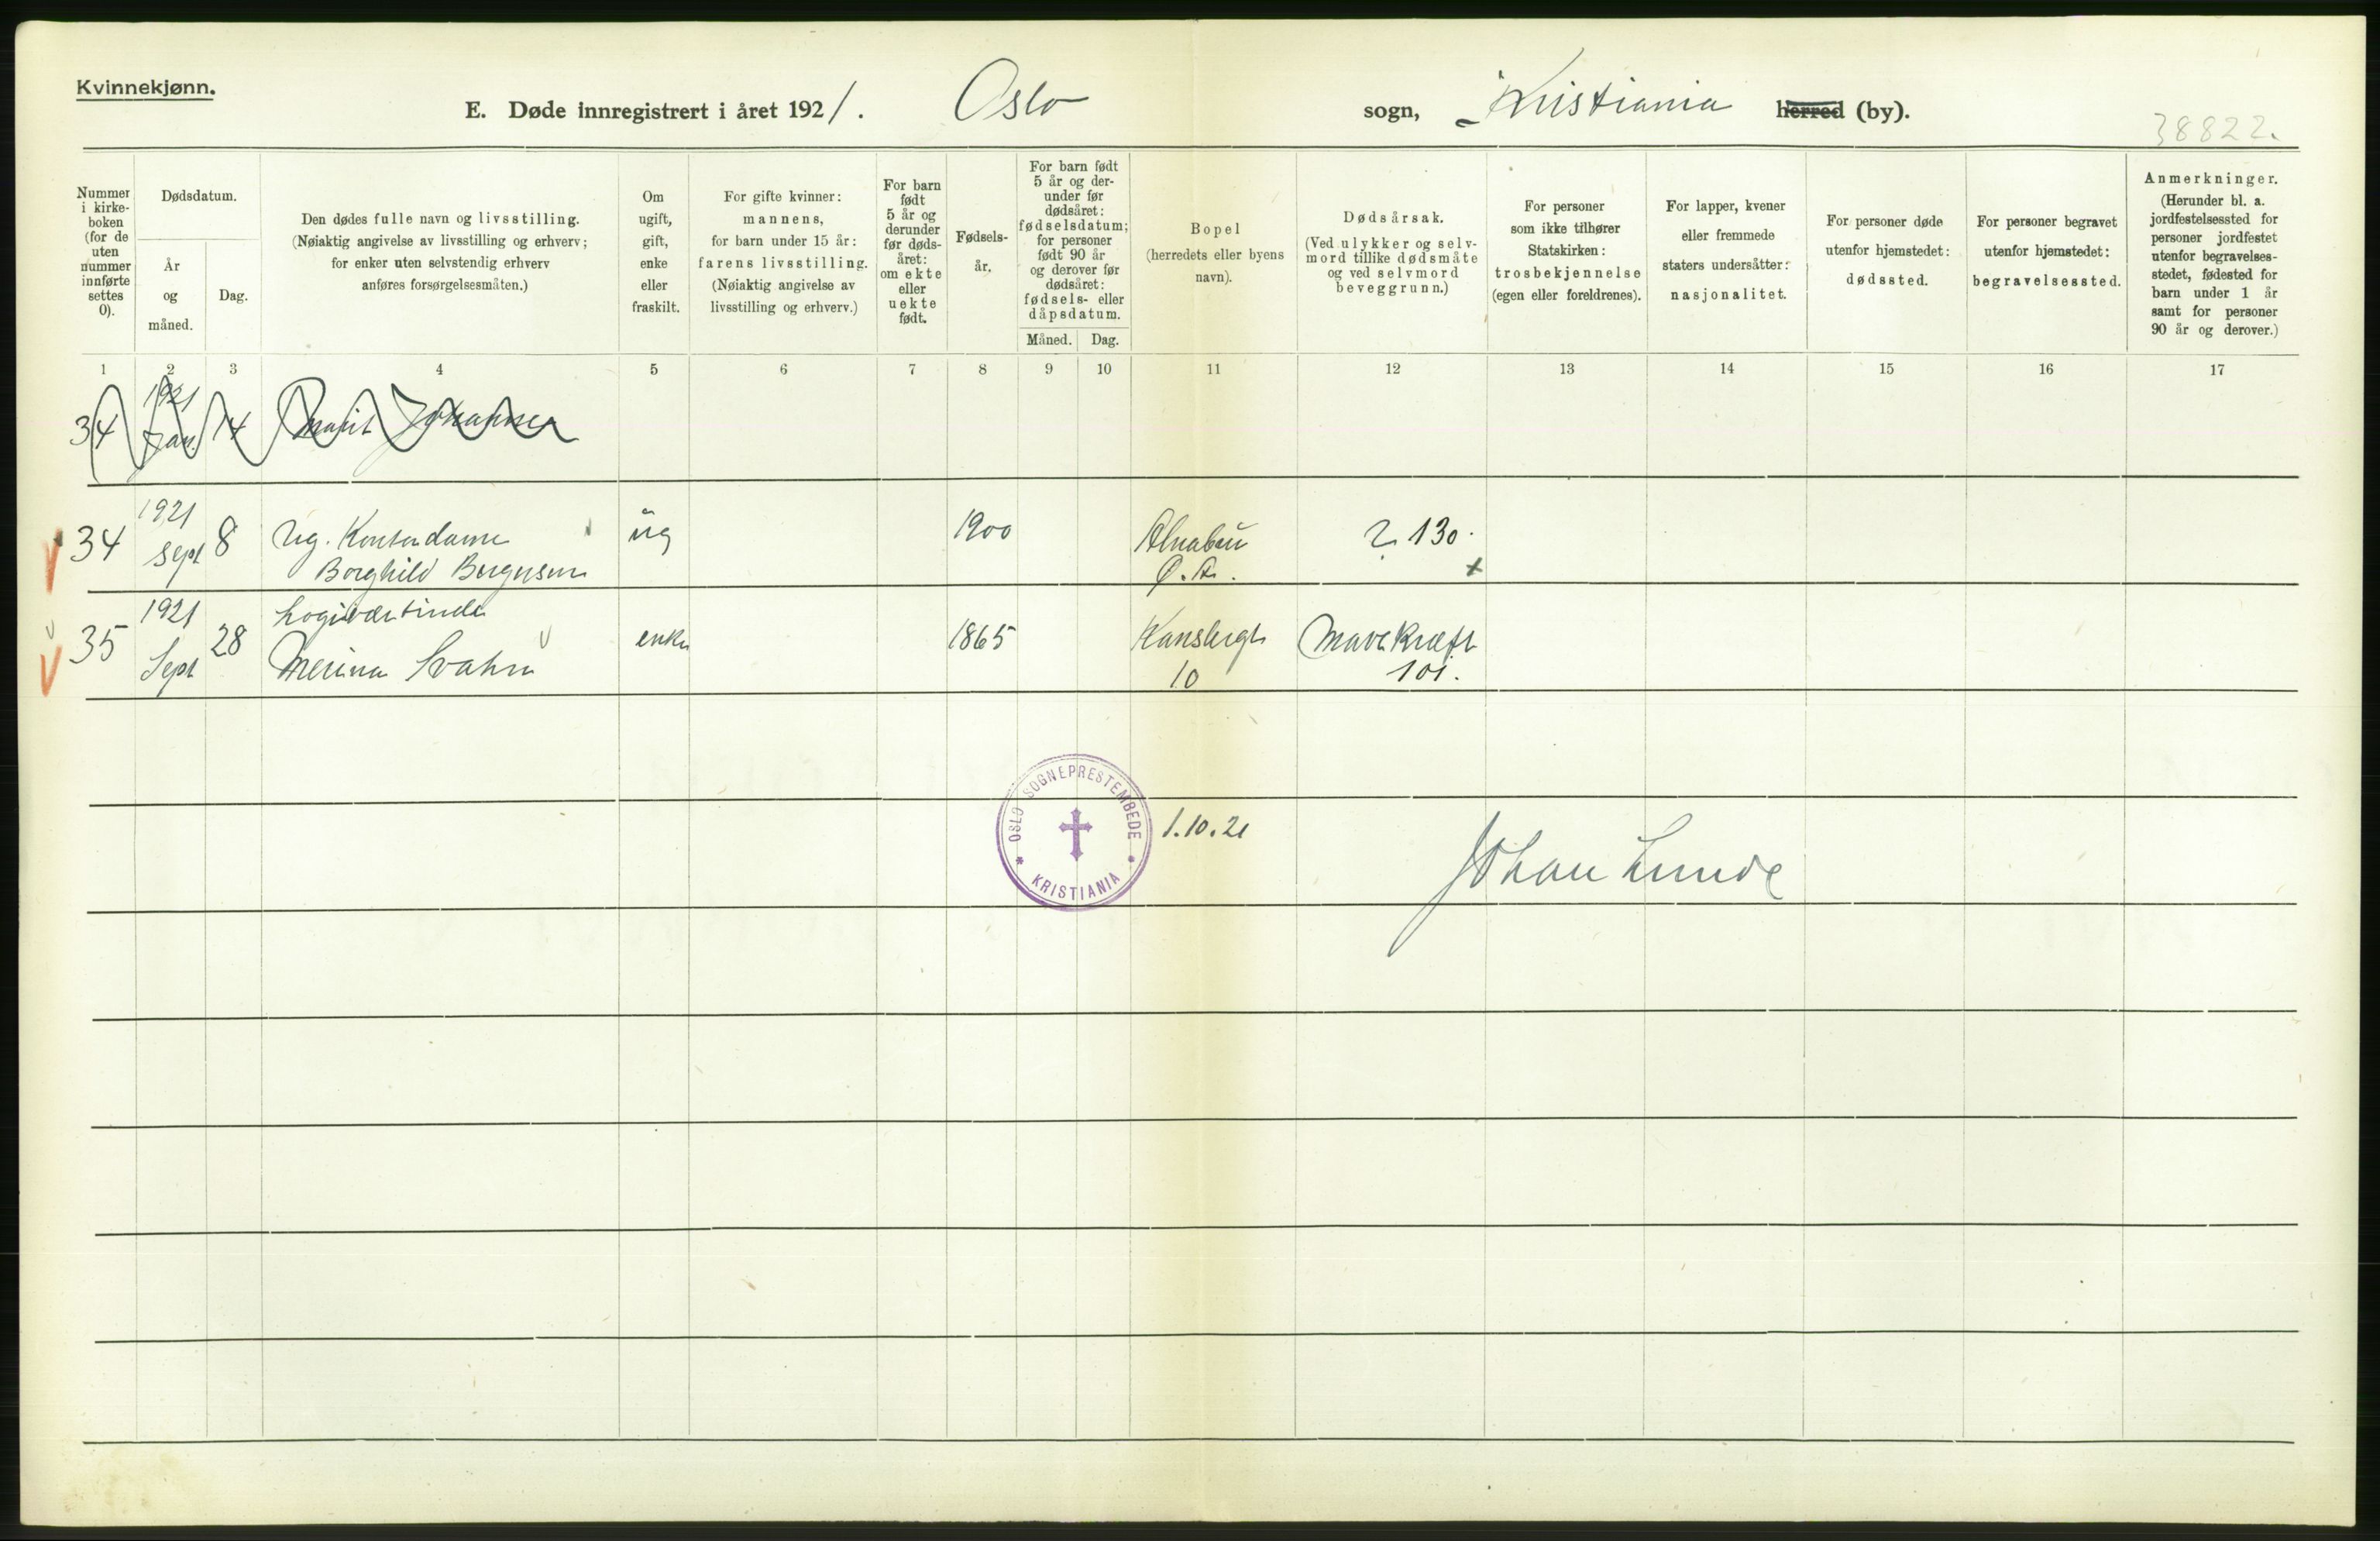 Kvinnekjønn.
E. Døde innregistrert i året 1921. Oslo sogn, Kristiania herred (by).
38822.
Nummer
i kirke-
boken
(for de
uten
nummer
innførte
settes
0).
Dødsdatum.
År
og
måned.
Dag.
Den dødes fulle navn og livsstilling.
(Nøiaktig angivelse av livsstilling og erhverv;
for enker uten selvstendig erhverv
anføres forsørgelsesmåten.)
Om
ugift,
gift,
enke
eller
fraskilt.
For gifte kvinner:
mannens,
for barn under 15 år:
farens livsstilling.
(Nøiaktig angivelse av
livsstilling og erhverv.)
For barn
født
5 år og
derunder
før døds-
året:
om ekte
eller
uekte
født.
Fødsels-
år.
For barn født
5 år og der-
under før
dødsåret:
fødselsdatum;
for personer
født 90 år
og derover før
dødsåret:
fødsels- eller
dåpsdatum.
Måned. Dag.
Bopel
(herredets eller byens
navn).
Dødsårsak.
(Ved ulykker og selv-
mord tillike dødsmåte
og ved selvmord
beveggrunn.)
For personer
som ikke tilhører
Statskirken:
trosbekjennelse
(egen eller foreldrenes).
For lapper, kvener
eller fremmede
staters undersåtter:
nasjonalitet.
For personer døde
utenfor hjemstedet:
dødssted.
For personer begravet
utenfor hjemstedet:
begravelsessted.
Anmerkninger.
(Herunder bl. a.
jordfestelsessted for
personer jordfestet
utenfor begravelses-
stedet, fødested for
barn under 1 år
samt for personer
90 år og derover.)
1 2 3 4 5 6 7 8 9 10 11 12 13 14 15 16 17
1921
34 Jan. 14 Marit Johannsen
1921
34 Sept 8 Ug. Kontordame ug 1900 Alnabru ? 130.
Borghild Bergersen Ø. A. x
1921 Logivertinde
35 Sept 28 enke 1865 Mavekræft
Svahn 10 101.
OSLO SOGNEPRESTEMBEDE
* KRISTIANIA
1.10.21
Johan Lunde